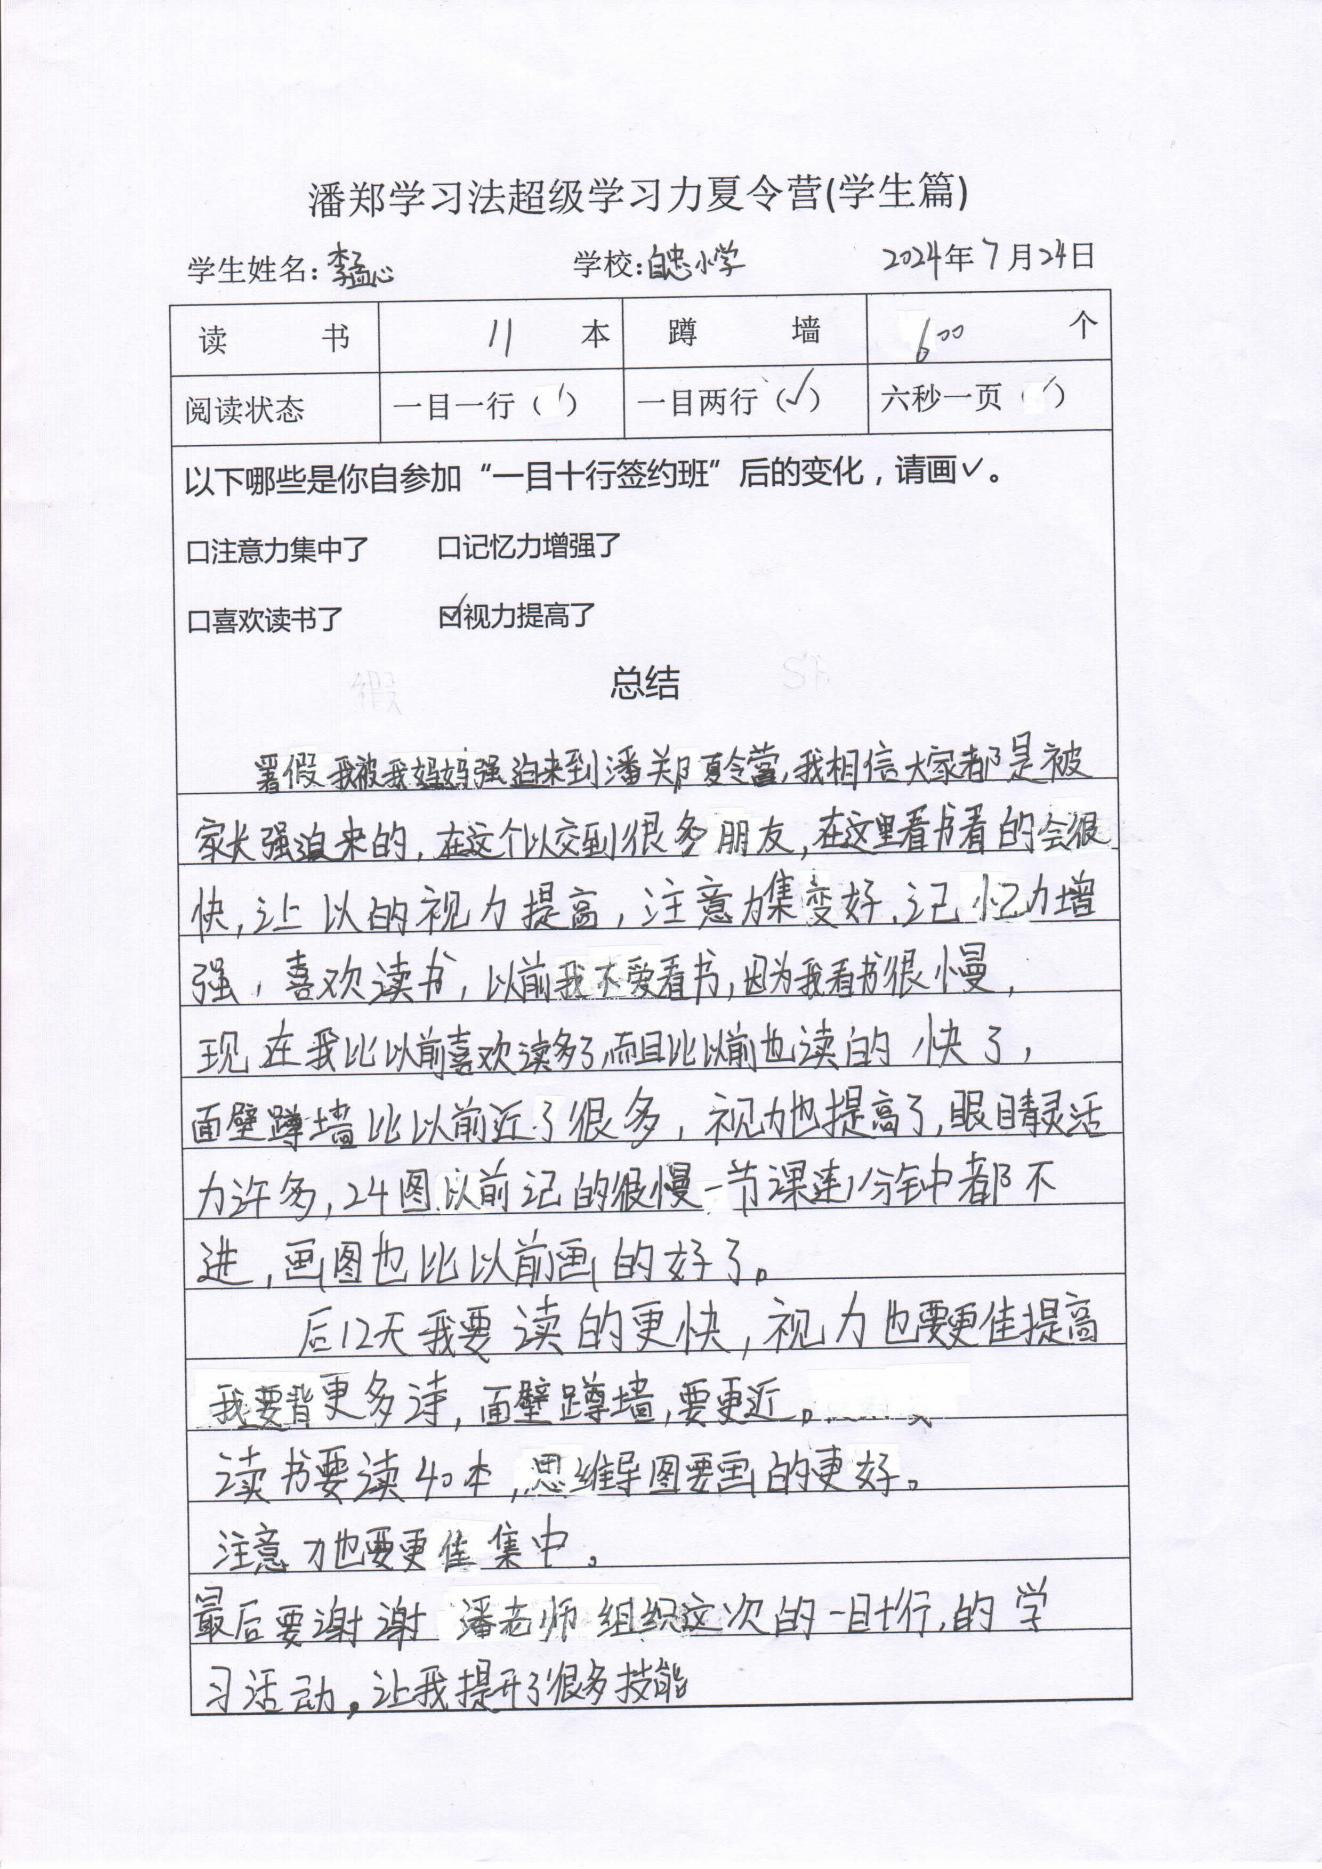 潘郑学习法超级学习力夏令营(学生篇)
学生姓名:李孟心 学校:自忠小学 2024年7月24日
读 书 11 本 蹲 墙 600 个
阅读状态 一目一行( ) 一目两行(✓) 六秒一页( )
以下哪些是你自参加“一目十行签约班”后的变化,请画✓。
口注意力集中了 口记忆力增强了
口喜欢读书了 ☑视力提高了
总结
署假我被我妈妈强迫来到潘郑夏令营,我相信大家都是被
家长强迫来的,在这个以交到很多朋友,在这里看书看的会很
快,让以的视力提高,注意力集变好,记忆力增
强,喜欢读书,以前我不爱看书,因为我看书很慢,
现在我比以前喜欢读多了而且比以前也读的快了,
面壁蹲墙比以前近了很多,视力也提高了,眼睛灵活
力许多,24图以前记的很慢一节课连1分钟都不
进,画图也比以前画的好了。
后12天我要读的更快,视力也要更佳提高
我要背更多诗,面壁蹲墙,要更近。
读书要读40本,思维导图要画的更好。
注意力也要更佳集中。
最后要谢谢潘老师组织这次的一目十行,的学
习活动。让我提升了很多技能